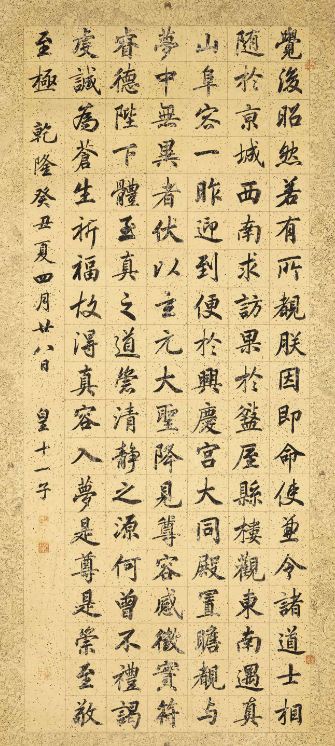 覺後昭然若有所覩朕因即命使並令諸道士相
随於京城西南求訪果於盩屋縣樓觀東南遇真
山阜容一昨迎到便於興慶宮大同殿置瞻覩与
夢中無異者伏以玄元大聖降見尊容感徵寶符
睿德陛下體至真之道崇清静之源何曾不禮謁
虔誠為蒼生祈福故得真容入夢是尊是崇至敬
至極 乾隆癸丑夏四月廿八日 皇十一子